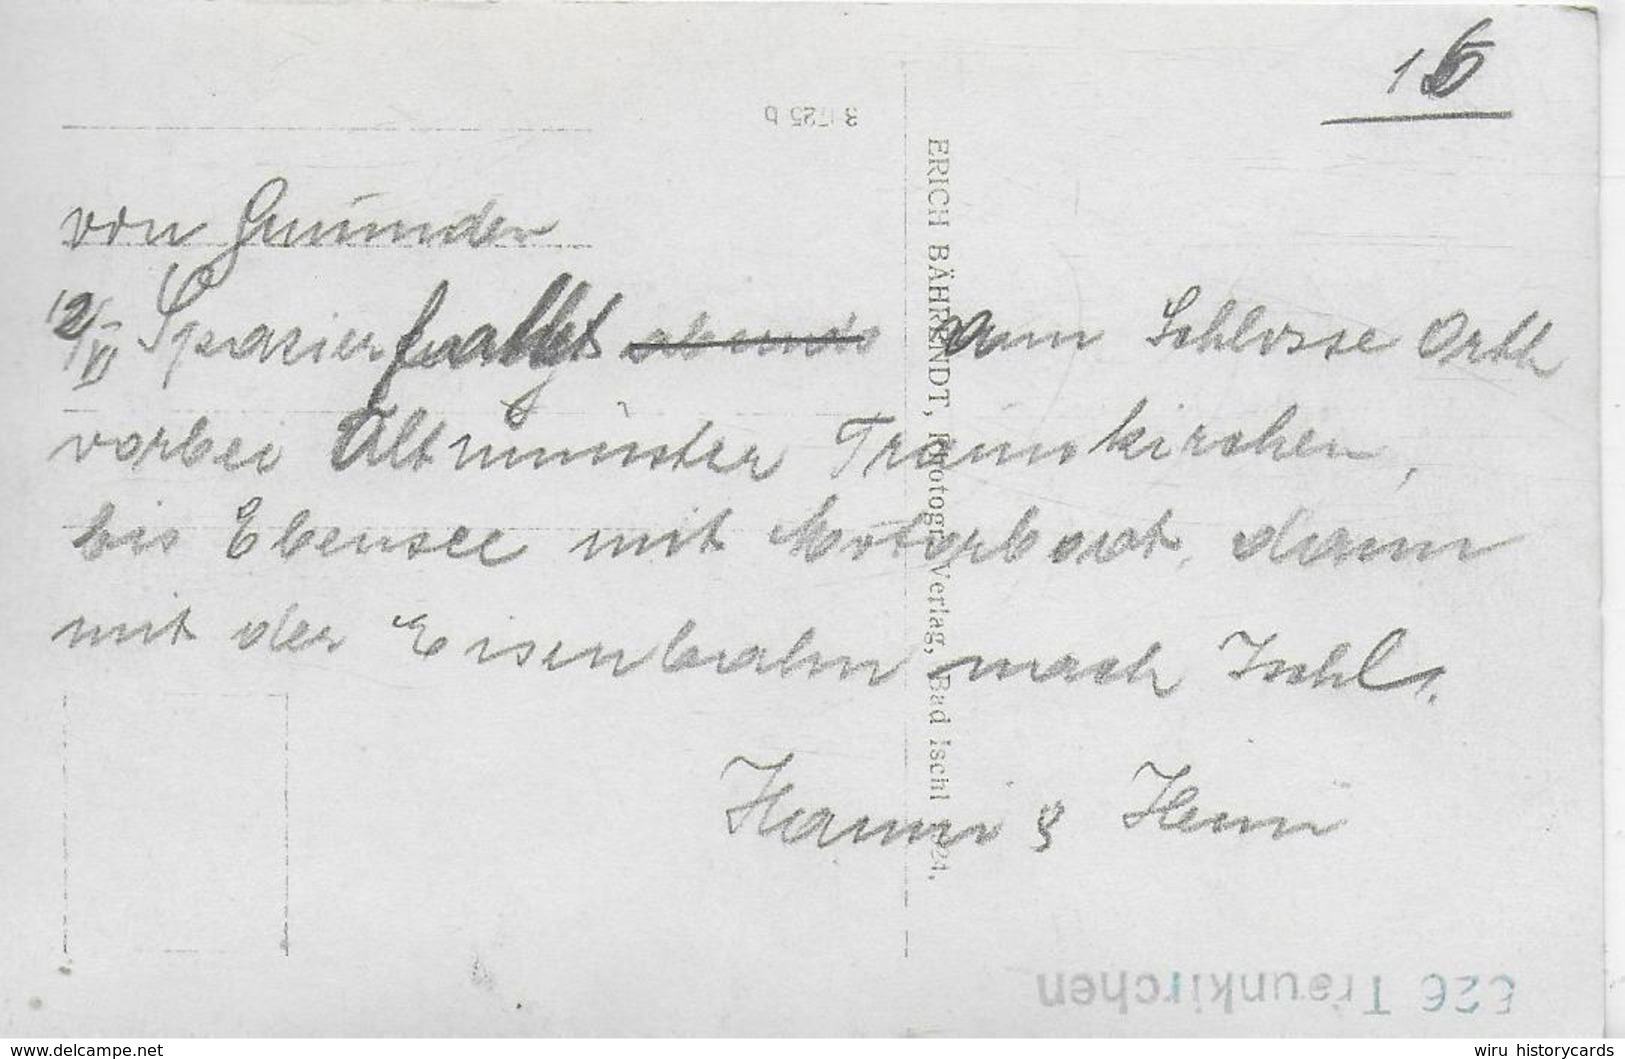 15
3 1725 b
von Gmunden
12/VI Spazierfahrt abends am Schlosse Orth
vorbei Altmünster Traunkirchen,
bis Ebensee mit Motorboot, dann
mit der Eisenbahn nach Ischl.
Hanni & Heini
ERICH BÄHRENDT, Photogr. Verlag, Bad Ischl 1924.
826 Traunkirchen
www.delcampe.net
wiru historycards